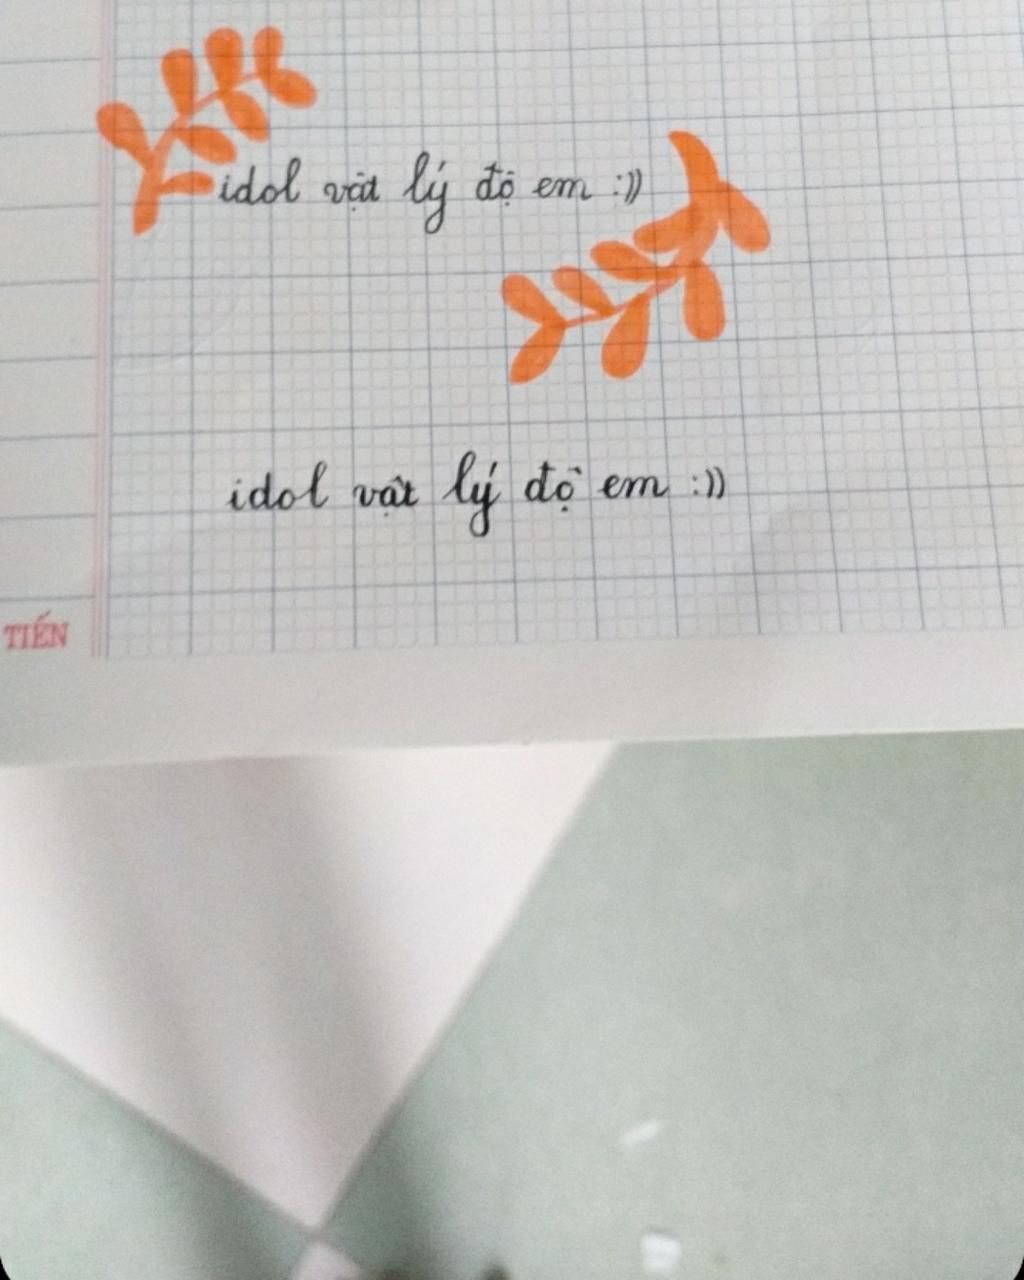 idol vật lý độ em :))
idol vật lý độ em :))
TIẾN